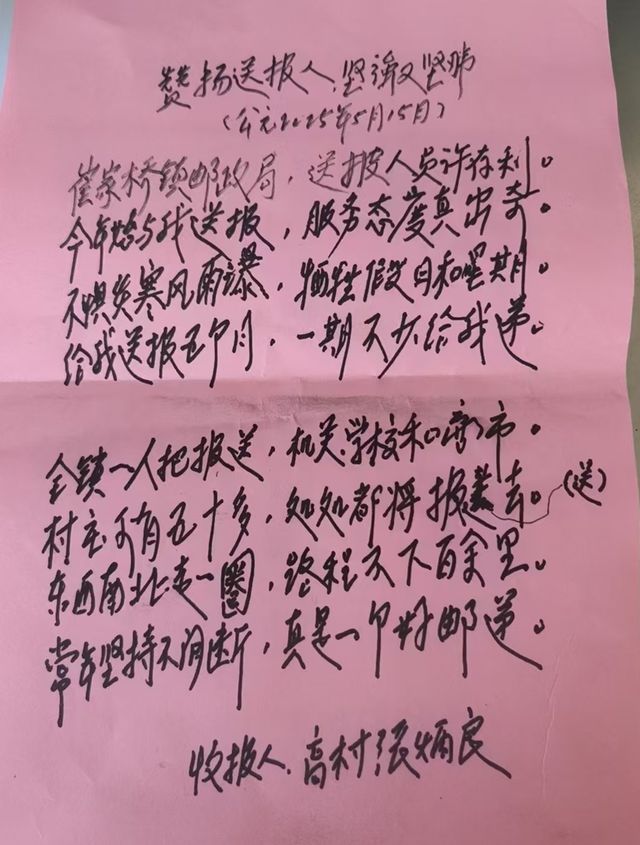 赞扬送报人.坚谢又坚
(公元2025年5月15日)
崔家桥镇邮政局，送报人员许存利。
今年始与我送报，服务态度真出奇。
不惧炎寒风雨瀑，牺牲假日和星期。
给我送报五个月，一期不少给我递。
全镇一人把报送，机关.学校和门市。
村庄可有五十多，处处都将报去。(送)
东西南北走一圈，路程不下百余里。
常年坚持不间断，真是一个好邮递。
收报人.高村张炳良